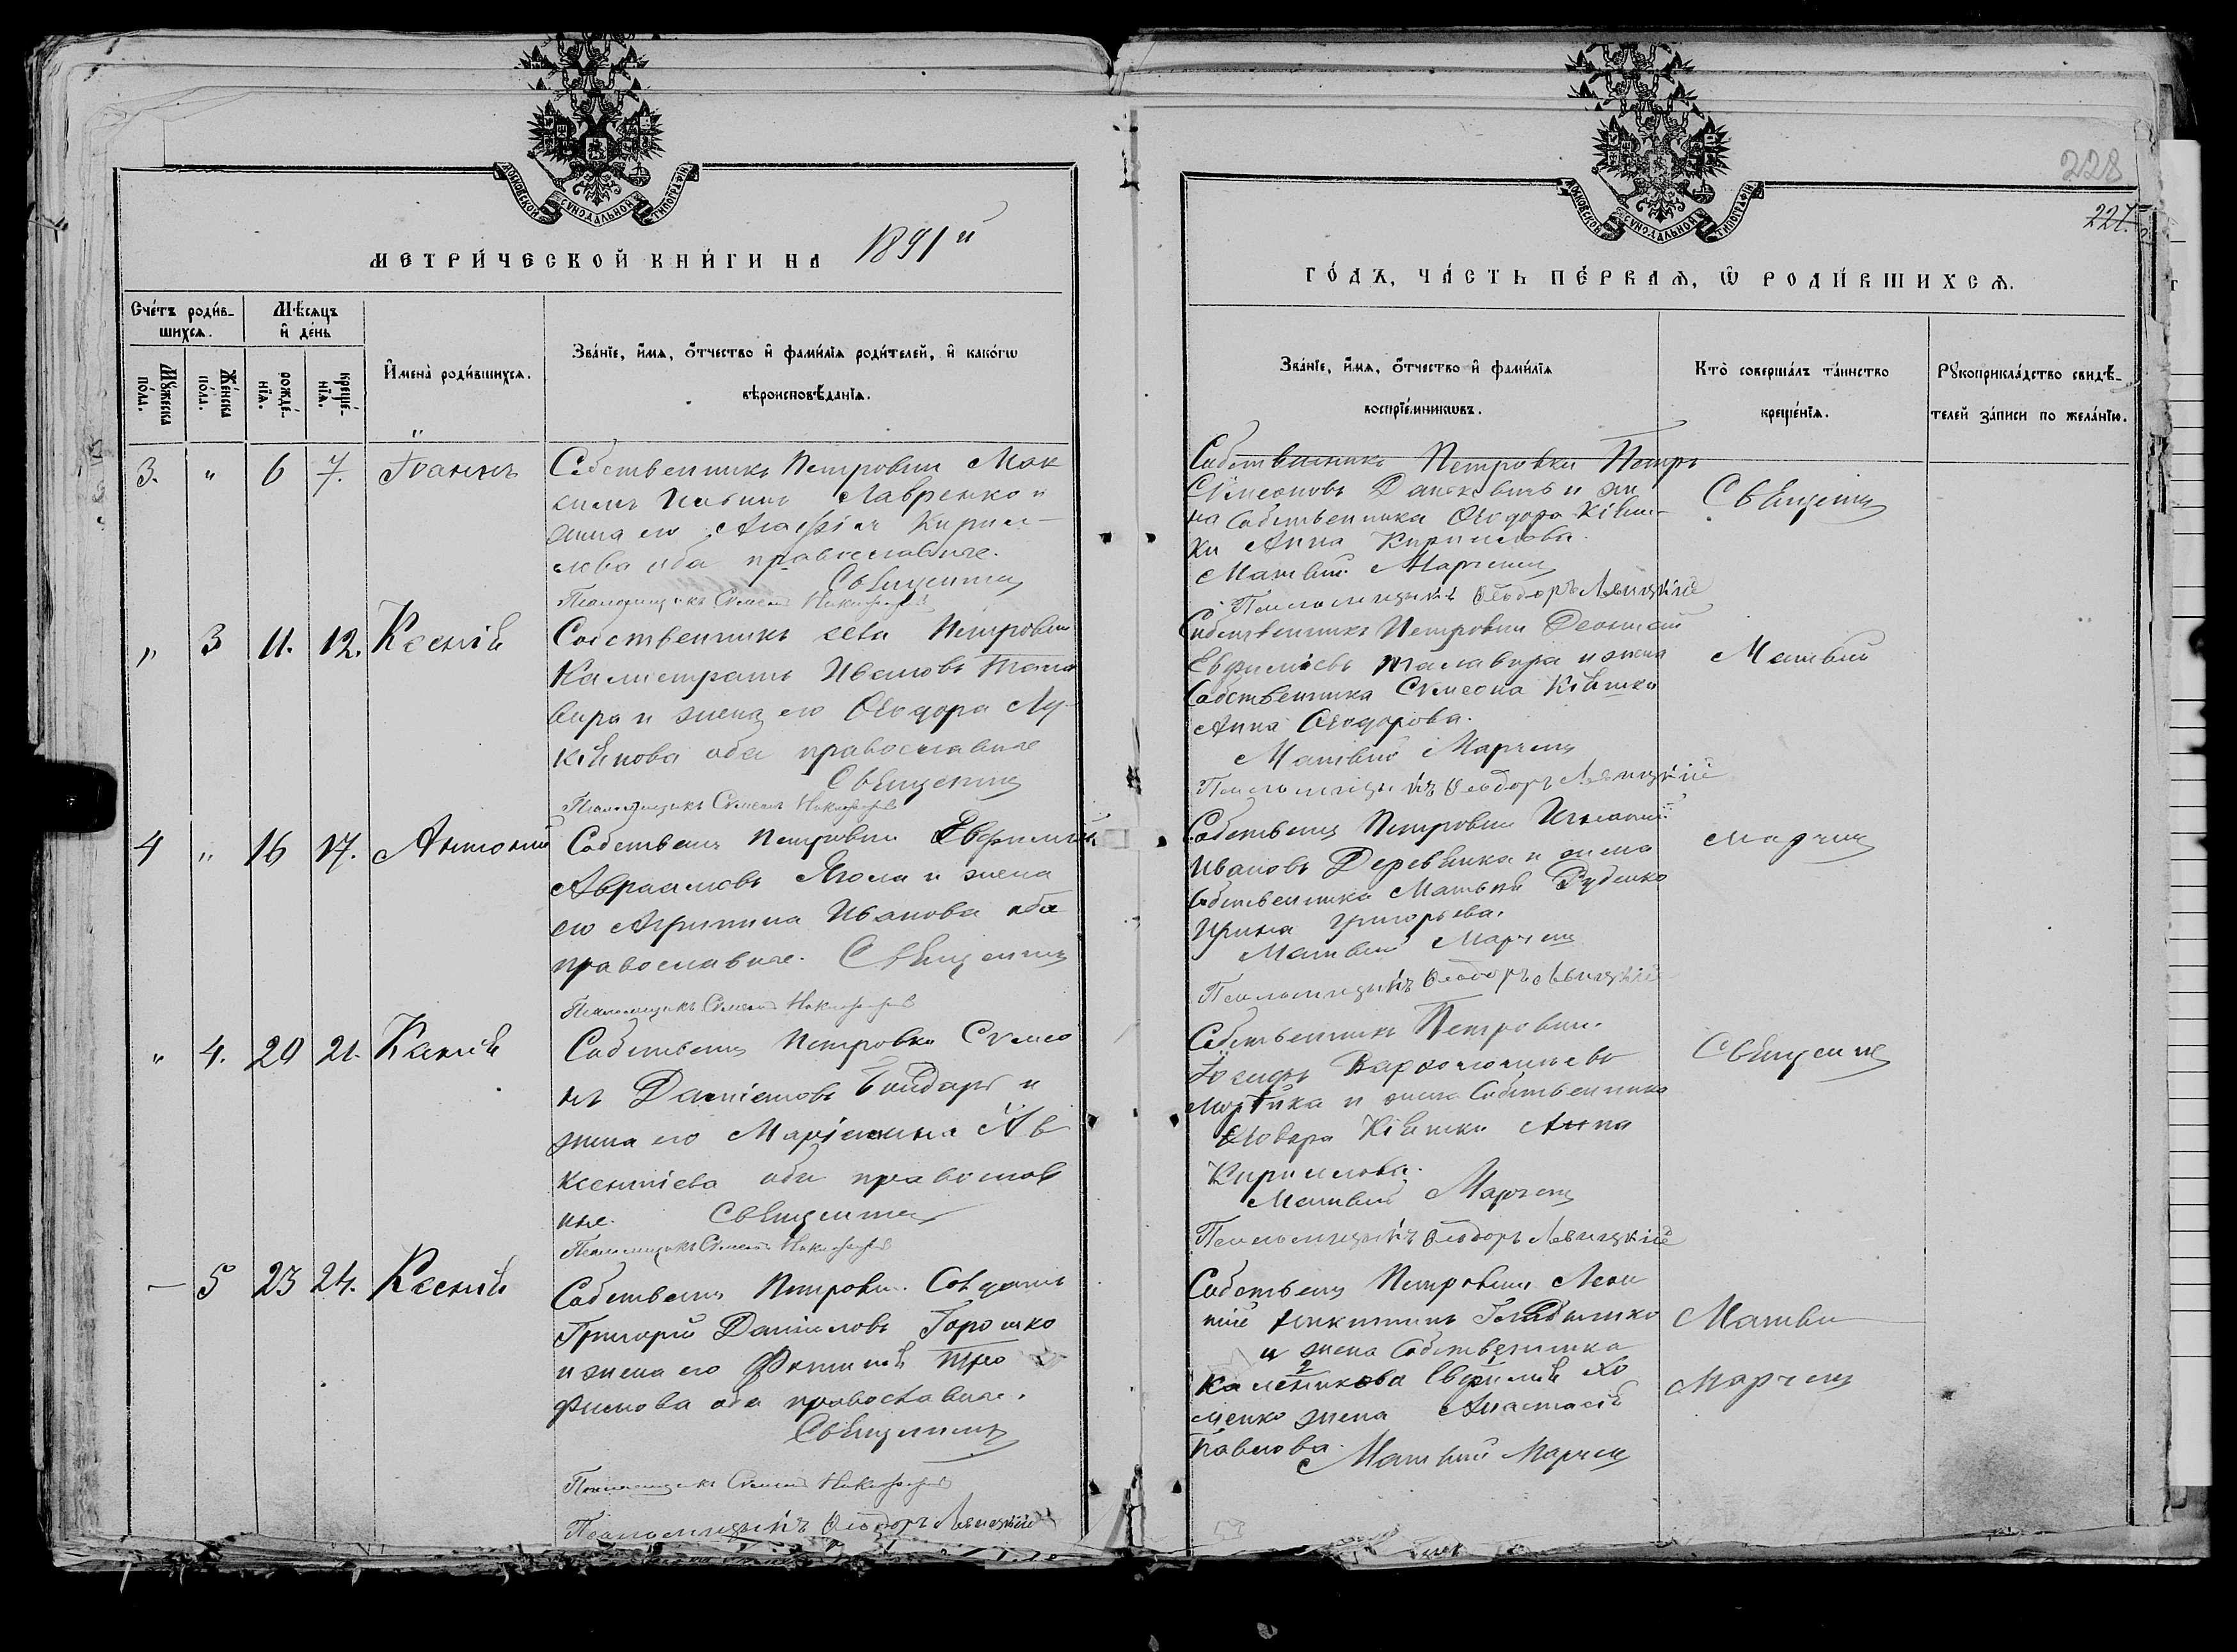 МОСКОВСКОЙ СѴНОДАЛЬНОЙ ТИПОГРАФІИ
МЕТРИ́ЧЕСКОЙ КНИ́ГИ НА 1891й
Сче́тъ роди́в-
шихсѧ.
Мѣ́сѧцъ
и҆ де́нь
Мꙋ́жеска
по́лꙋ.
Же́нска
по́лꙋ.
рожде́-
нїѧ.
креще́-
нїѧ.
И҆мена̀ роди́вшихсѧ.
Зва́нїе, и҆́мѧ, ѻ҆́тчество и҆ фами́лїѧ роди́телей, и҆ како́гѡ
вѣроисповѣ́данїѧ.
3. " 6 7. Іоаннъ
Собственникъ Петровки Мак
симъ Лавренко и
жена его Агафія Кирил-
лова оба православные.
Священникъ
Псаломщикъ Сѵмеонъ Никифоровъ
" 3 11. 12. Ксенія
Собственникъ села Петровки
Калистратъ Ивановъ Тала
вира и жена его Ѳеодора Лу-
кіянова оба православные
Священникъ
Псаломщикъ Сѵмеонъ Никифоровъ
4 " 16 17. Антоній
Собственъ Петровки Евфимій
Авраамовъ Ягола и жена
его Агрипина Иванова оба
православные. Священникъ
Псаломщикъ Сѵмеонъ Никифоровъ
" 4. 20 21. Ксенія
Собственъ Петровки Сѵмео
нъ Даніиловъ Бондарь и
жена его Маріамна Ав
ксентіева оба православ
ные. Священникъ
Псаломщикъ Сѵмеонъ Никифоровъ
— 5 23 24. Ксенія
Собственъ Петровки. Солдатъ
Григорій Даніиловъ Горошко
и жена его Фотинія Тро
фимова оба православные.
Священникъ
Псаломщикъ Сѵмеонъ Никифоровъ
Псаломщикъ Ѳеодоръ Левицкій
228
227.
МОСКОВСКОЙ СѴНОДАЛЬНОЙ ТИПОГРАФІИ
ГО́ДЪ, ЧА́СТЬ ПЕ́РВАѦ, Ѡ҆ РОДИ́ВШИХСѦ.
Зва́нїе, и҆́мѧ, ѻ҆́тчество и҆ фами́лїѧ
воспрїе́мникѡвъ.
Кто̀ соверша́лъ та́инство
креще́нїѧ.
Рꙋкоприкла́дство свидѣ́-
телей за́писи по жела́нїю.
Собственникъ Петровки Петръ
Сѵмеоновъ и же
на Собственника Ѳеодора Ківш-
ки Анна Кириллова.
Матвій Марченко
Псаломщикъ Ѳеодоръ Левицкій
Священникъ
Собственникъ Петровки Леонтій
Евфиміевъ Талавира и жена
Собственника Сѵмеона Ківшки
Анна Ѳеодорова.
Матвій Марченко
Псаломщикъ Ѳеодоръ Левицкій
Матвій
Собственъ Петровки Игнатій
Ивановъ Деревянка и жена
Собственника Матвія Руденко
Ирина Григорьева.
Матвій Марченко
Псаломщикъ Ѳеодоръ Левицкій
Марченко
Собственникъ Петровки.
Іосифъ Варфоломеевъ
и жена Собственника
Ѳеодора Ківшки Анна
Кириллова.
Матвій Марченко
Псаломщикъ Ѳеодоръ Левицкій
Священникъ
Собственъ Петровки Леон
тій Никитинъ
и жена Собственника
Хо
менко жена Анастасія
Павлова. Матвій Марченко
Матвій
Марченко